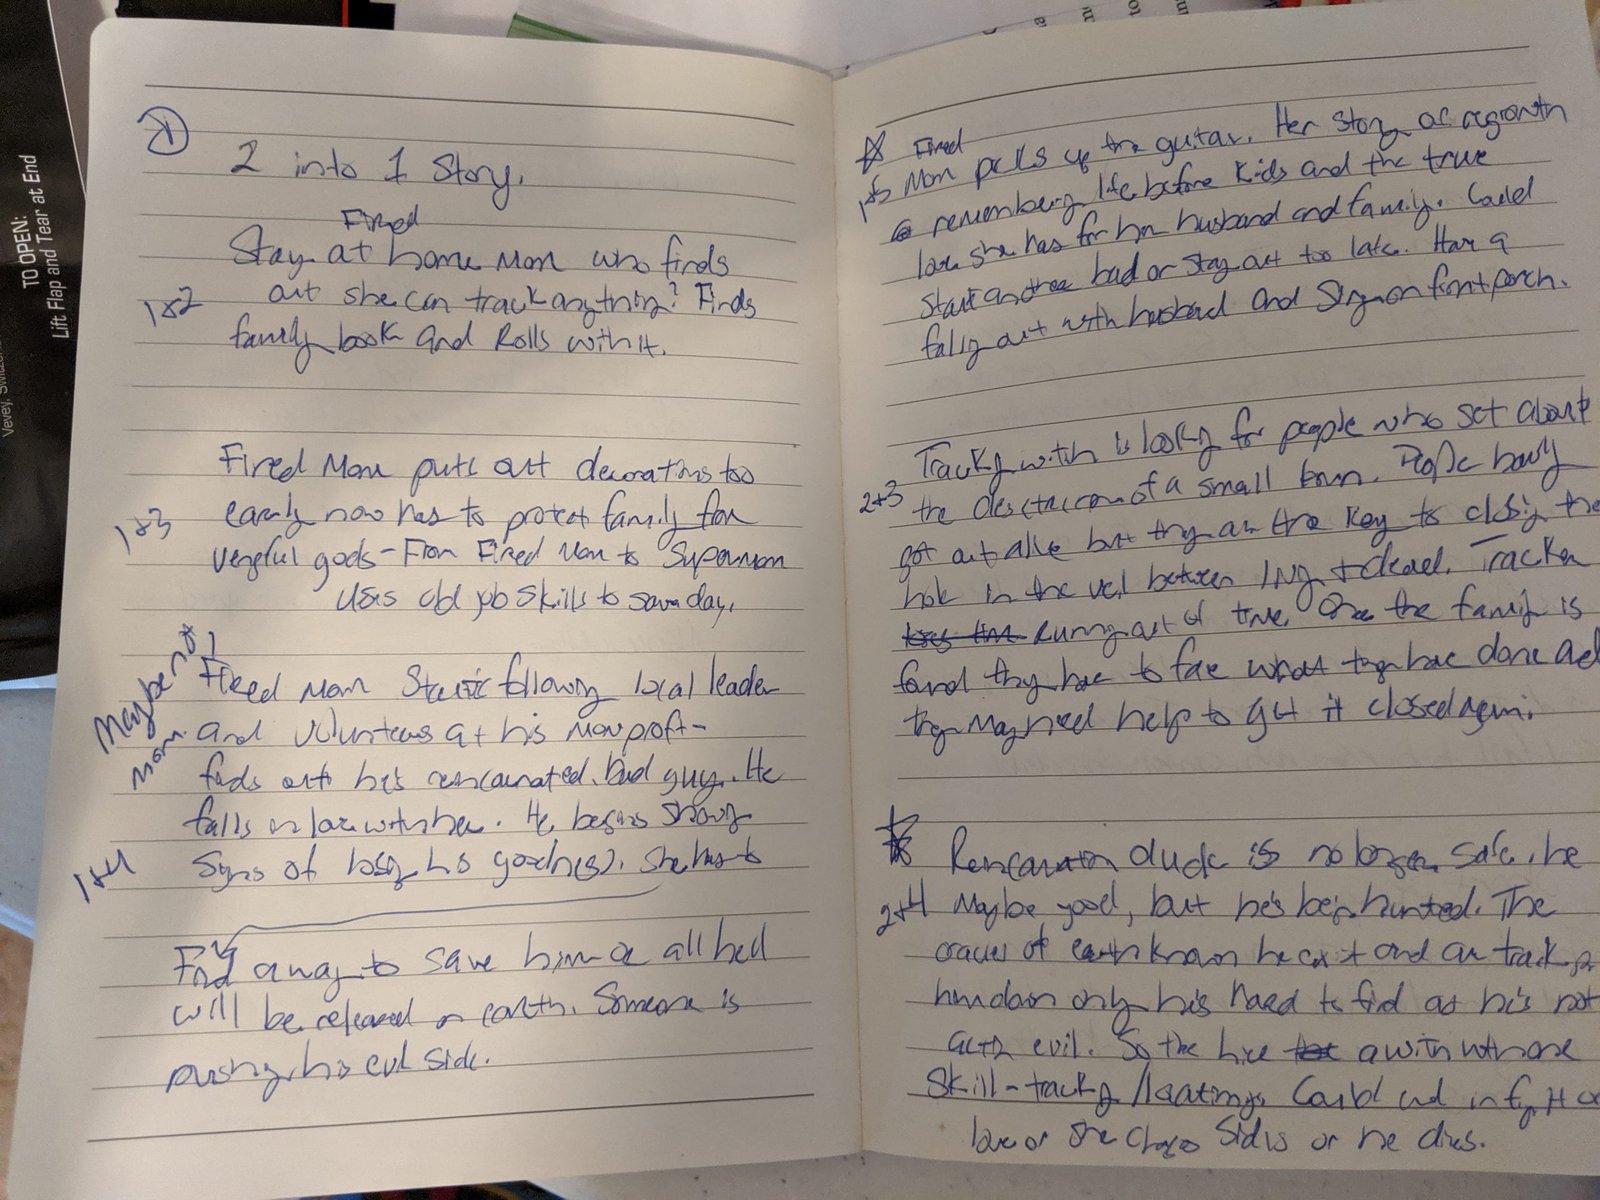 TO OPEN:
Lift Flap and Tear at End
Vevey,
2 into 1 Story.
Fired
Stay at home Mom who finds
1+2
out she can track anything? Finds
family book and Rolls with it.
Fired Mom puts out decorations too
1+3
early now has to protect family from
vengeful gods - From Fired Mom to Supermom
Uses old job skills to save day.
Maybe not
Mom
Fired Mom Starts following local leader
and volunteers at his nonprofit -
finds out he's reincarnated bad guy. He
falls in love with her. He begins showing
1+4
Signs of losing his good(s). She has to
Find a way to save him or all hell
will be released on earth. Someone is
pushing his evil side.
Fired
1+5
Mom picks up the guitar. Her story of regrowth
remembering life before kids and the true
love she has for her husband and family. Could
start another band or stay out too late. Have a
falling out with husband and sing on front porch.
Tracking witch is looking for people who set about
2+3
the destruction of a small town. People barely
got out alive but they are the key to closing the
hole in the veil between living + dead. Tracker
running out of time. Once the family is
found they have to face what they have done and
they may need help to get it closed again.
Reincarnation dude is no longer safe, he
2+4
Maybe good, but he's being hunted. The
oracles of earth know he exist and are tracking
him down only he's hard to find as he's not
acting evil. So the hire a witch with one
skill - tracking / locating. Could end in fight or
love or she chose sides or he dies.